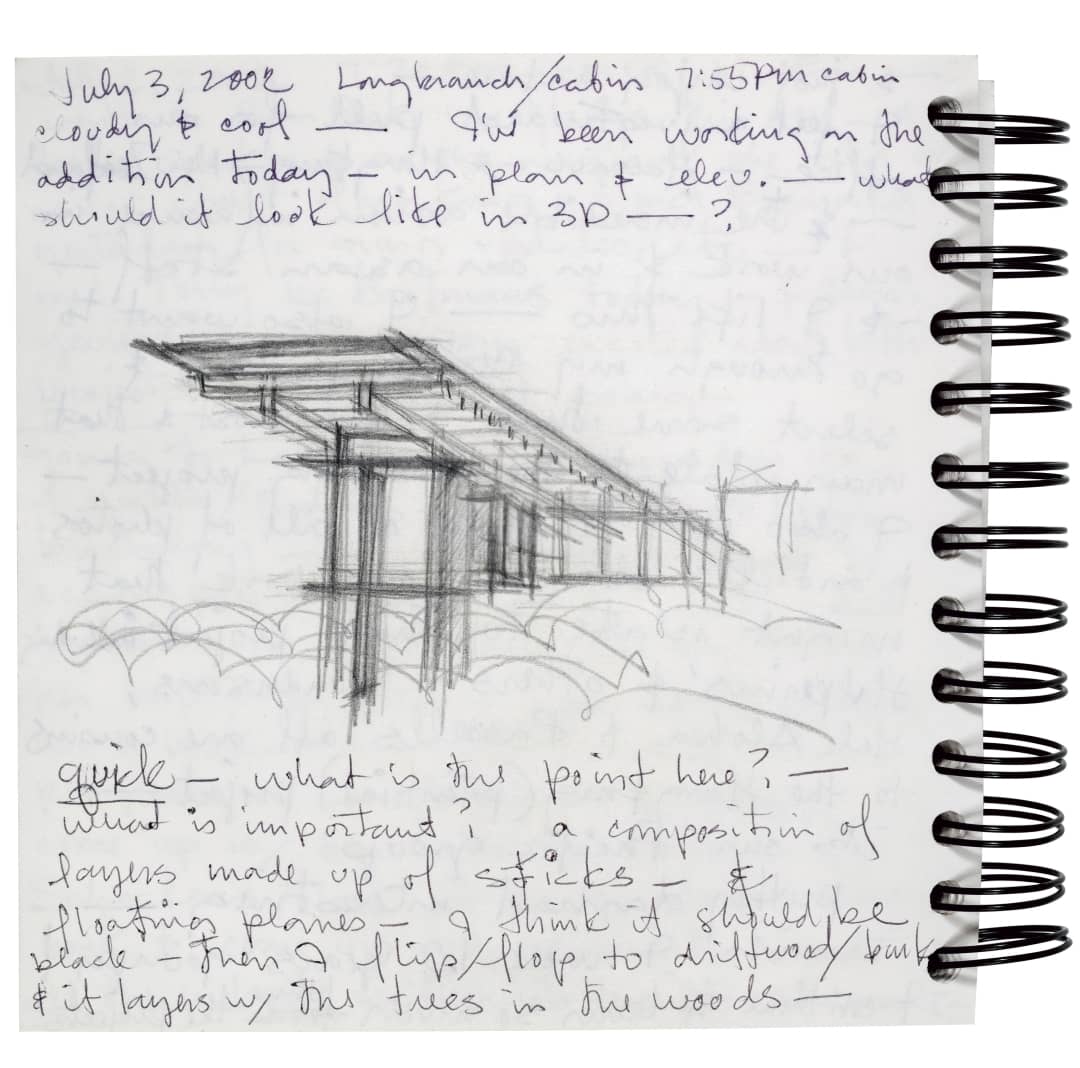 July 3, 2002 Longbranch/cabin 7:55PM cabin
cloudy & cool — I've been working on the
addition today — in plan & elev. — what
should it look like in 3D — ?
quick — what is the point here? —
what is important? a composition of
layers made up of sticks — &
floating planes — I think it should be
black — then I flip/flop to driftwood/bark
& it layers w/ the trees in the woods —